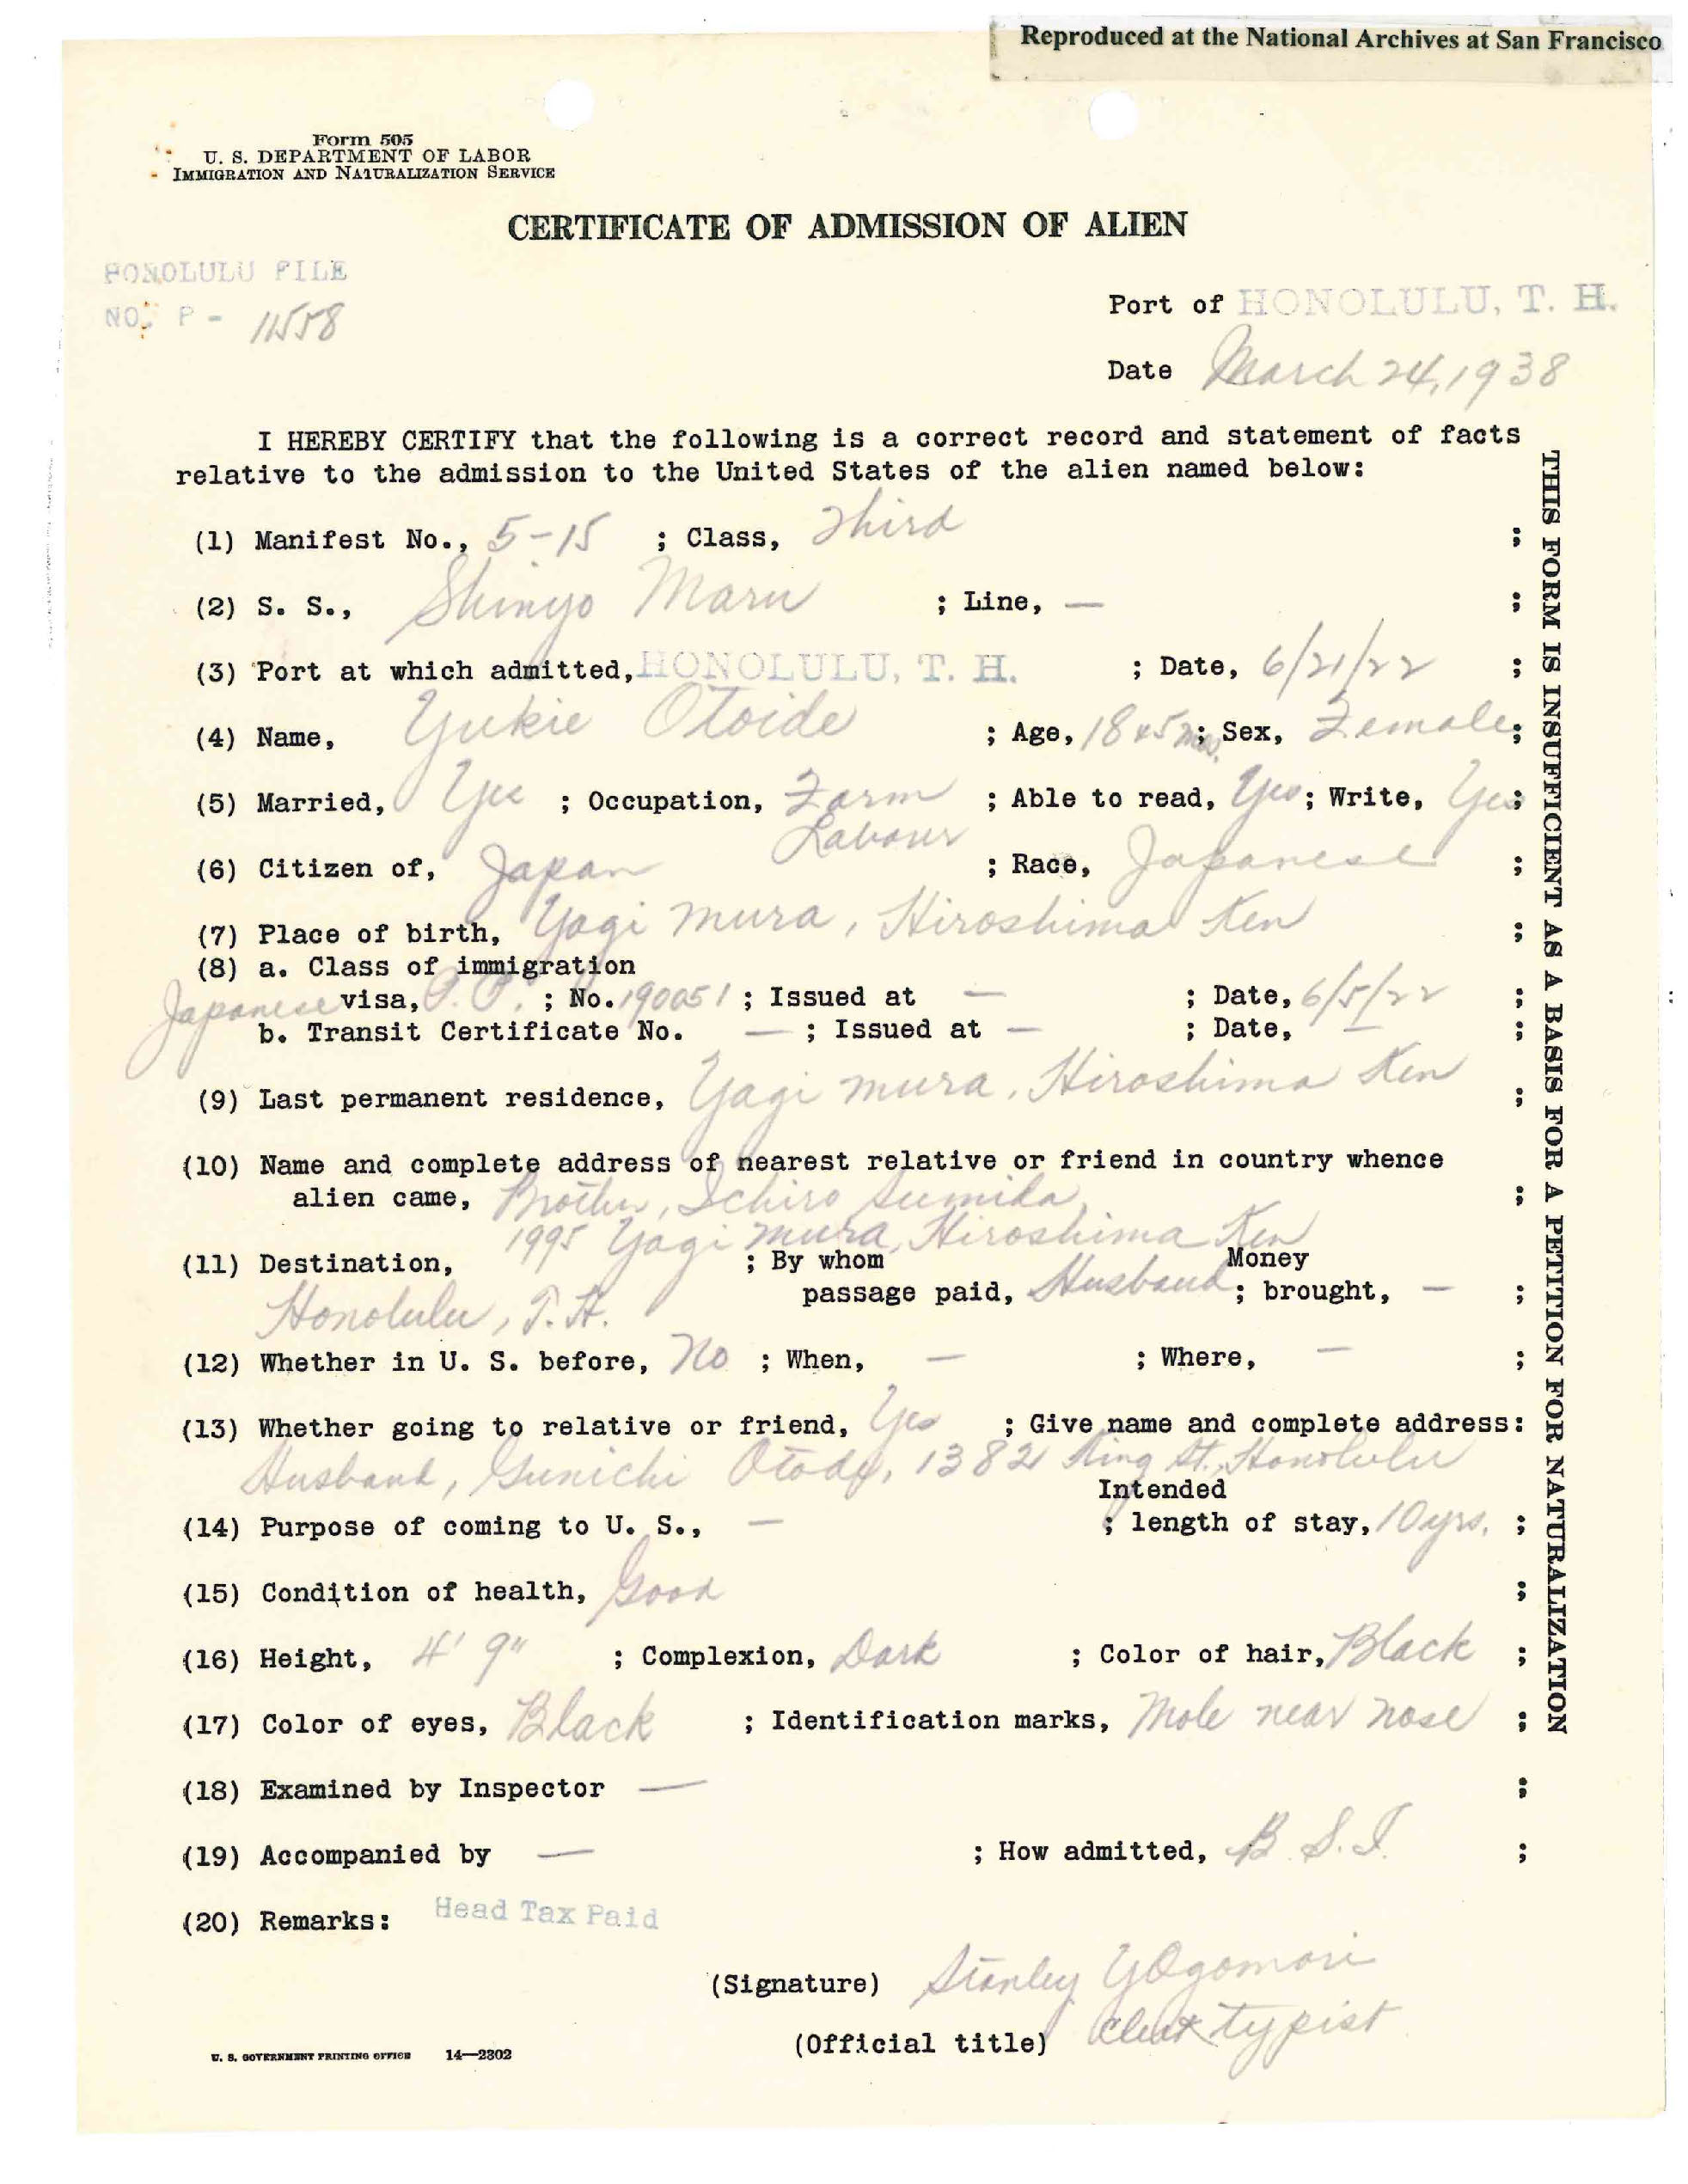 Reproduced at the National Archives at San Francisco
Form 505
U. S. DEPARTMENT OF LABOR
IMMIGRATION AND NATURALIZATION SERVICE
CERTIFICATE OF ADMISSION OF ALIEN
HONOLULU FILE
NO. P - 11558
Port of HONOLULU, T. H.
Date March 24, 1938
I HEREBY CERTIFY that the following is a correct record and statement of facts
relative to the admission to the United States of the alien named below:
(1) Manifest No., 5-15 ; Class, Third ;
(2) S. S., Shinyo Maru ; Line, — ;
(3) Port at which admitted, HONOLULU, T. H. ; Date, 6/21/22 ;
(4) Name, Yukie Otoide ; Age, 18 5 mos. ; Sex, Female ;
(5) Married, Yes ; Occupation, Farm ; Able to read, Yes ; Write, Yes ;
Labour
(6) Citizen of, Japan ; Race, Japanese ;
(7) Place of birth, Yagi mura, Hiroshima Ken ;
(8) a. Class of immigration
Japanese visa, P.P. ; No. 190051 ; Issued at — ; Date, 6/5/22 ;
b. Transit Certificate No. — ; Issued at — ; Date, — ;
(9) Last permanent residence, Yagi mura, Hiroshima Ken ;
(10) Name and complete address of nearest relative or friend in country whence
alien came, Brother, Ichiro Sumida, ;
1995 Yagi mura, Hiroshima Ken
(11) Destination, ; By whom Money
passage paid, Husband ; brought, — ;
Honolulu, T.H.
(12) Whether in U. S. before, No ; When, — ; Where, — ;
(13) Whether going to relative or friend, Yes ; Give name and complete address:
Husband, Gunichi 1382 King St., Honolulu
Intended
(14) Purpose of coming to U. S., — ; length of stay, 10 yrs. ;
(15) Condition of health, Good ;
(16) Height, 4' 9" ; Complexion, Dark ; Color of hair, Black ;
(17) Color of eyes, Black ; Identification marks, Mole near nose ;
(18) Examined by Inspector — ;
(19) Accompanied by — ; How admitted, B.S.I. ;
(20) Remarks: Head Tax Paid
(Signature) Stanley Y Ogomori
(Official title) Clerk typist
U. S. GOVERNMENT PRINTING OFFICE 14—2302
THIS FORM IS INSUFFICIENT AS A BASIS FOR A PETITION FOR NATURALIZATION